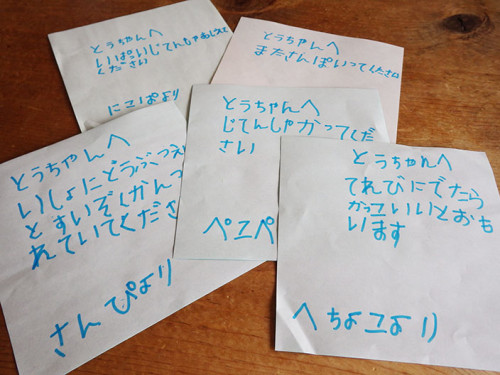 とうちゃんへ
いぱいじてんしゃおしえて
ください
にこぱより
とうちゃんへ
またさんぽいってください
とうちゃんへ
じてんしゃかってくだ
さい
ペコペ
とうちゃんへ
いしょにどうぶつえ
とすいぞくかんつ
れていてくださ
さんぴより
とうちゃんへ
てれびにでたら
かっコいいとおも
います
へちょコより